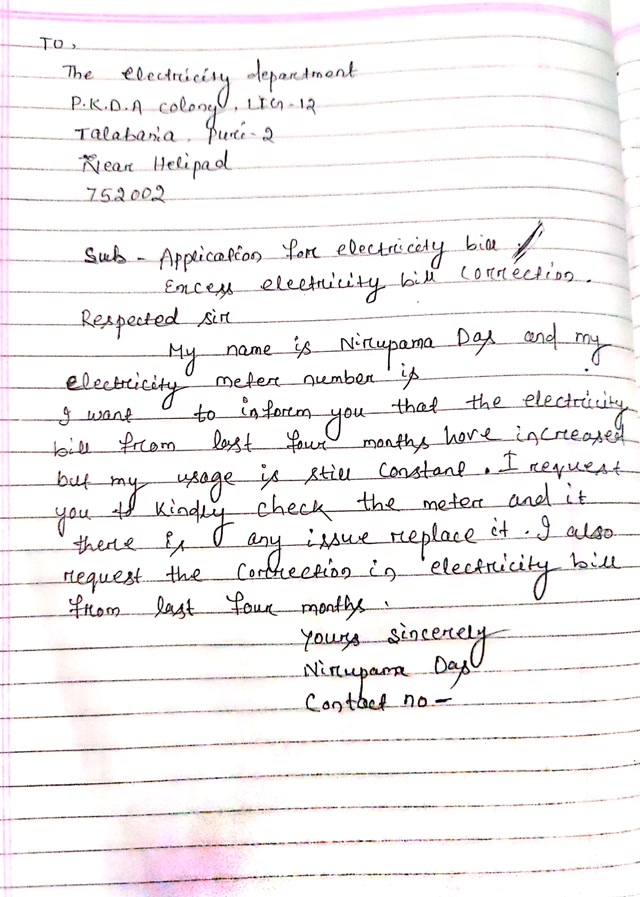 TO,
The electricity department
P.K.D.A colony, LIG-12
Talabania, Puri-2
Near Helipad
752002
Sub - Application for electricity bill
Excess electricity bill correction.
Respected sir
My name is Nirupama Das and my
electricity meter number is
I want to inform you that the electricity
bill from last four months have increased
but my usage is still constant. I request
you to kindly check the meter and it
there is any issue replace it. I also
request the correction in electricity bill
from last four months.
Yours sincerely
Nirupama Das
Contact no -